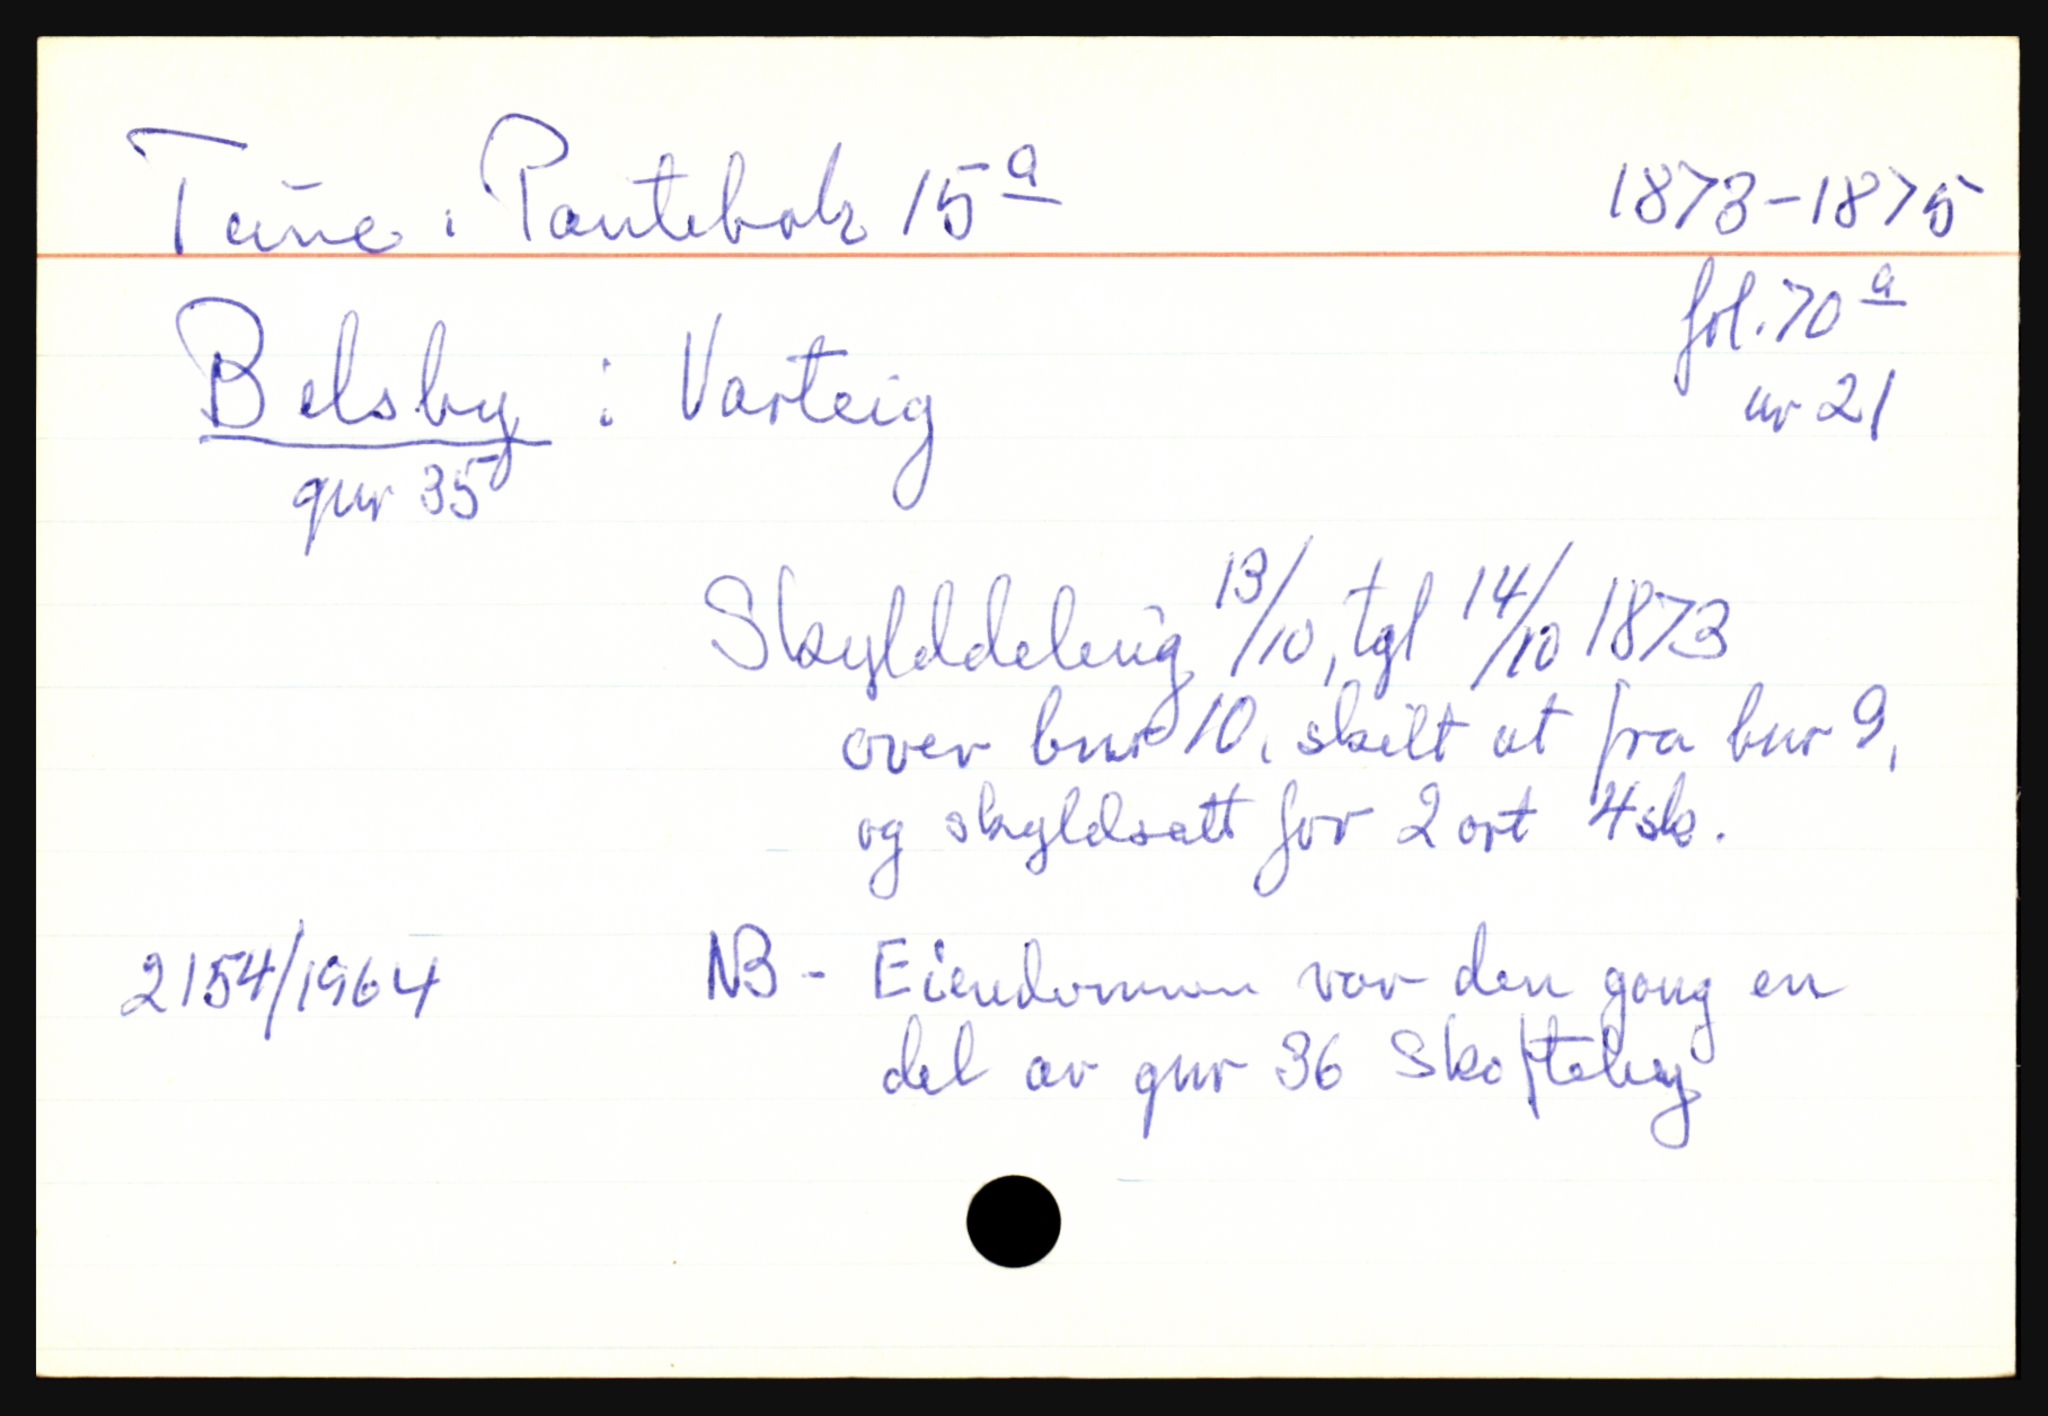 Tune. Pantebok 15a 1873-1875
fol. 70a
Belsby : Varteig nr 21
gnr 35
Skylddeling 13/10, tgl 14/10 1873
over bnr 10, skilt ut fra bnr 9,
og skyldsatt for 2 ort 4 sk.
2154/1964 NB - Eiendommen var den gang en
del av gnr 36 Skofteby